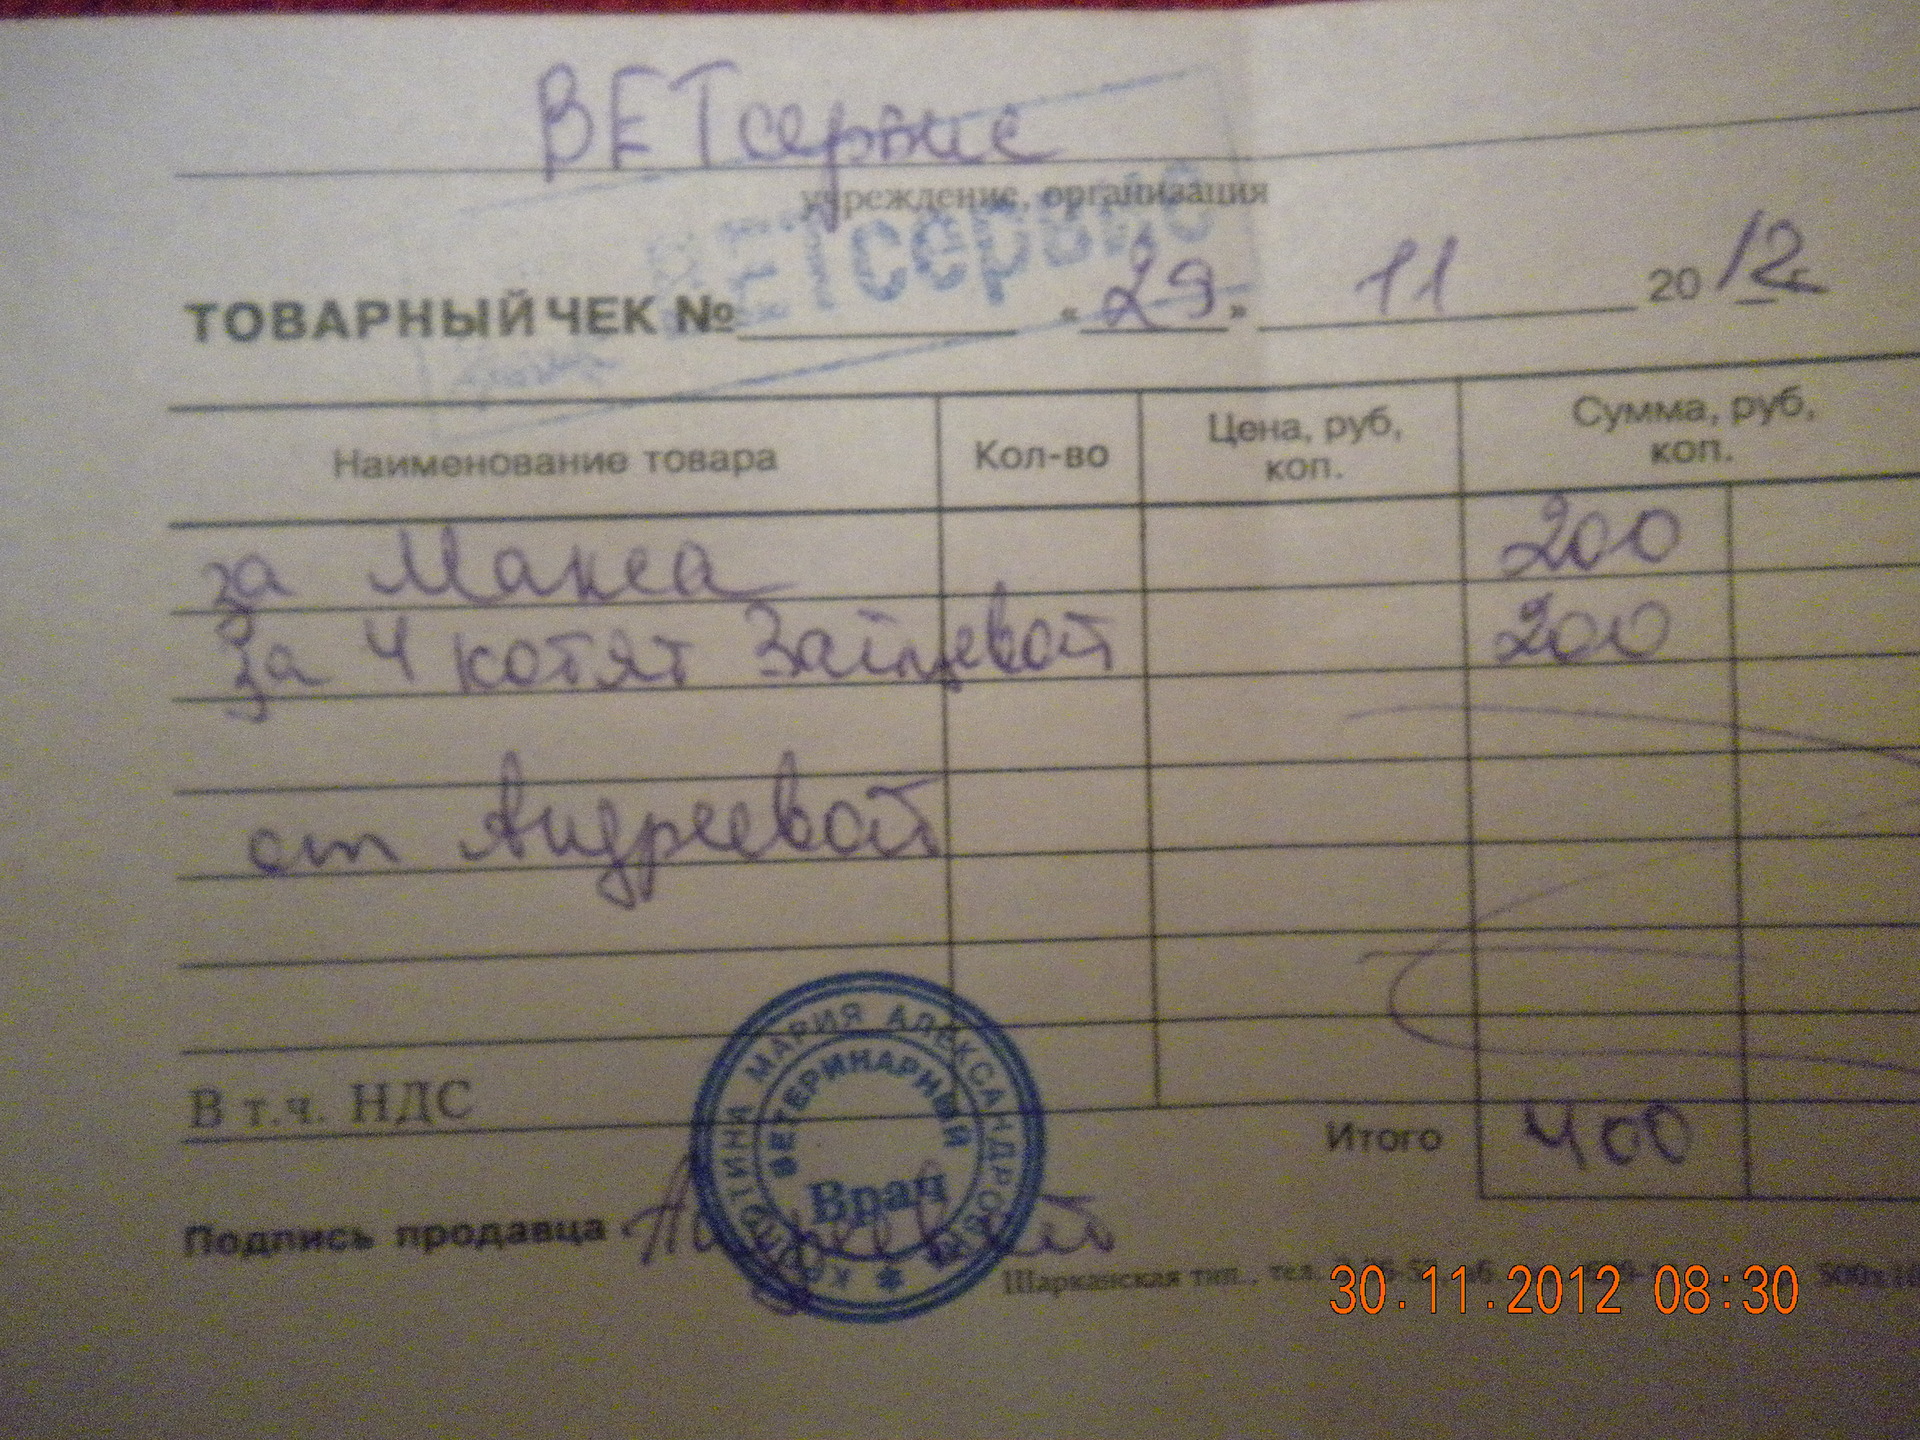 ВЕТсервис
учреждение, организация
ВЕТсервис
ТОВАРНЫЙ ЧЕК № « 29 » 11 20 12 г.
Наименование товара Кол-во Цена, руб, коп. Сумма, руб, коп.
за Макса 200
за 4 котят Зайцевой 200
от Андреевой
В т.ч. НДС
Итого 400
МАРИЯ АЛЕКСАНДРОВНА
ВЕТЕРИНАРНЫЙ
Врач
Подпись продавца
Шарканская тип., тел.
30.11.2012 08:30